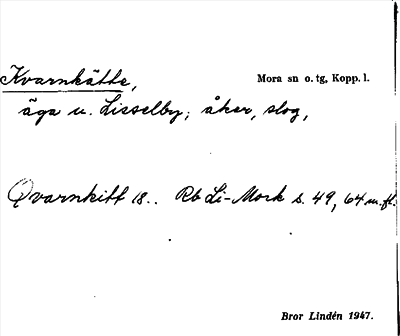 Kvarnkätte, Mora sn o. tg, Kopp. l.
äga u. Lisselby; åker, slog,
Qvarnkitt 18.. Rb Li-Mork s. 49, 64 m.fl.
Bror Lindén 1947.